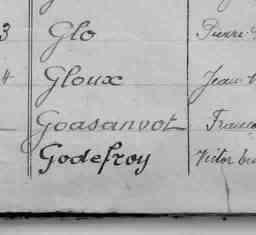 3 Glo Pierre
4 Gloux Jean
Goasanvot Franço
Godefroy Victor